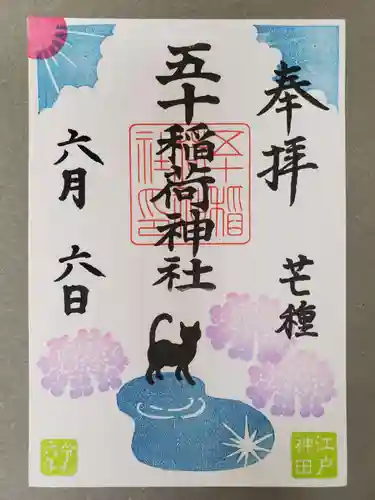 奉拝
芒種
五十稲荷神社
六月 六日
江戸
神田